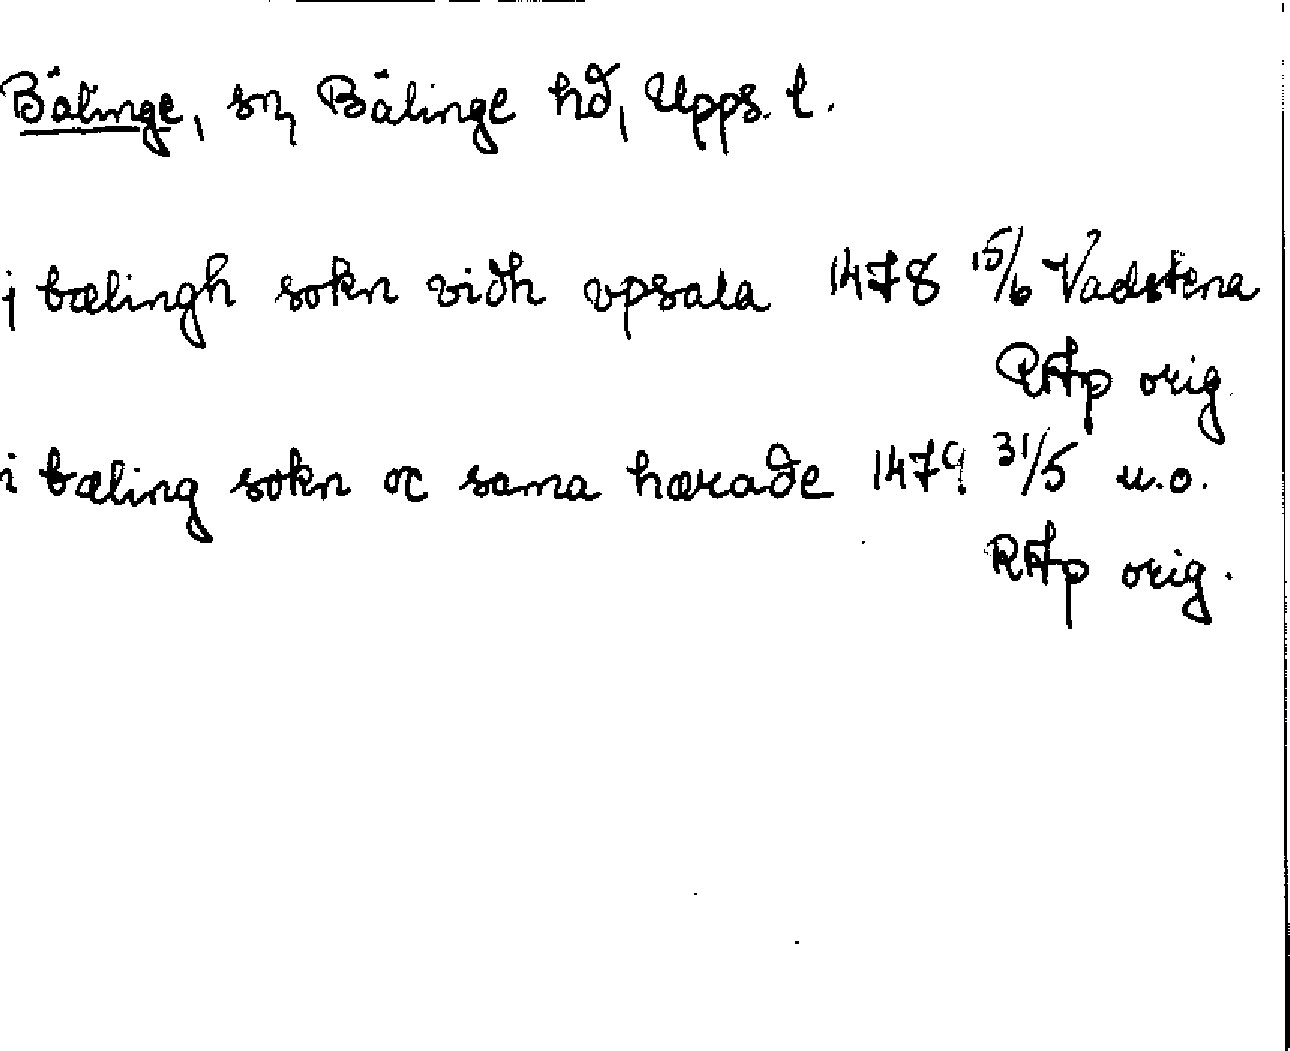 Bälinge, sn, Bälinge hd, Upps. l.
j bælingh sokn vidh vpsala 1478 15/6 Vadstena
RAp orig.
i bæling sokn oc sama hærade 1479 31/5 u.o.
RAp orig.